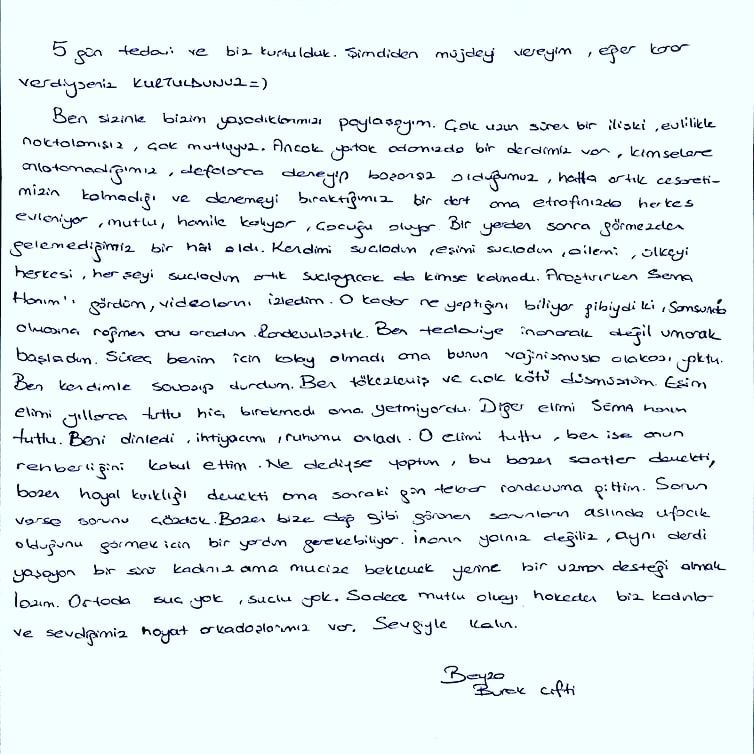 5 gün tedavi ve biz kurtulduk. Şimdiden müjdeyi vereyim, eğer karar
verdiyseniz KURTULDUNUZ =)
Ben sizinle bizim yaşadıklarımızı paylaşayım. Çok uzun süren bir ilişki, evlilikle
noktalamışız, çok mutluyuz. Ancak yatak odamızda bir derdimiz var, kimselere
anlatamadığımız, defalarca deneyip başarısız olduğumuz, hatta artık cesareti-
mizin kalmadığı ve denemeyi bıraktığımız bir dert ama etrafınızda herkes
evleniyor, mutlu, hamile kalıyor, çocuğu oluyor. Bir yerden sonra görmezden
gelemediğimiz bir hâl aldı. Kendimi suçladım, eşimi suçladım, ailemi, ülkeyi
herkesi, her şeyi suçladım artık suçlayacak da kimse kalmadı. Araştırırken Sema
Hanım'ı gördüm, videolarını izledim. O kadar ne yaptığını biliyor gibiydi ki, Samsunda
olmasına rağmen onu aradım. Randevulaştık. Ben tedaviye inanarak değil umarak
başladım. Süreç benim için kolay olmadı ama bunun vajinismusla alakası yoktu.
Ben kendimle savaşıp durdum. Ben tökezlemiş ve çok kötü düşmüştüm. Eşim
elimi yıllarca tuttu hiç bırakmadı ama yetmiyordu. Diğer elimi SEMA hanım
tuttu. Beni dinledi, ihtiyacımı, ruhumu anladı. O elimi tuttu, ben ise onun
rehberliğini kabul ettim. Ne dediyse yaptım, bu bazen saatler demekti,
bazen hayal kırıklığı demekti ama sonraki gün tekrar randevuma gittim. Sorun
varsa sorunu çözdük. Bazen bize dağ gibi görünen sorunların aslında ufacık
olduğunu görmek için bir yardım gerekebiliyor. İnanın yalnız değiliz, aynı derdi
yaşayan bir sürü kadınız ama mucize beklemek yerine bir uzman desteği almak
lazım. Ortada suç yok, suçlu yok. Sadece mutlu olmayı hakeden biz kadınlar
ve sevdiğimiz hayat arkadaşlarımız var. Sevgiyle kalın.
Beyza
Burak çifti